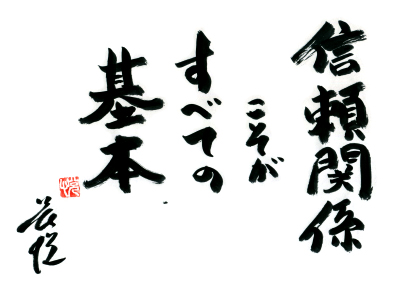 信頼関係
こそが
すべての
基本